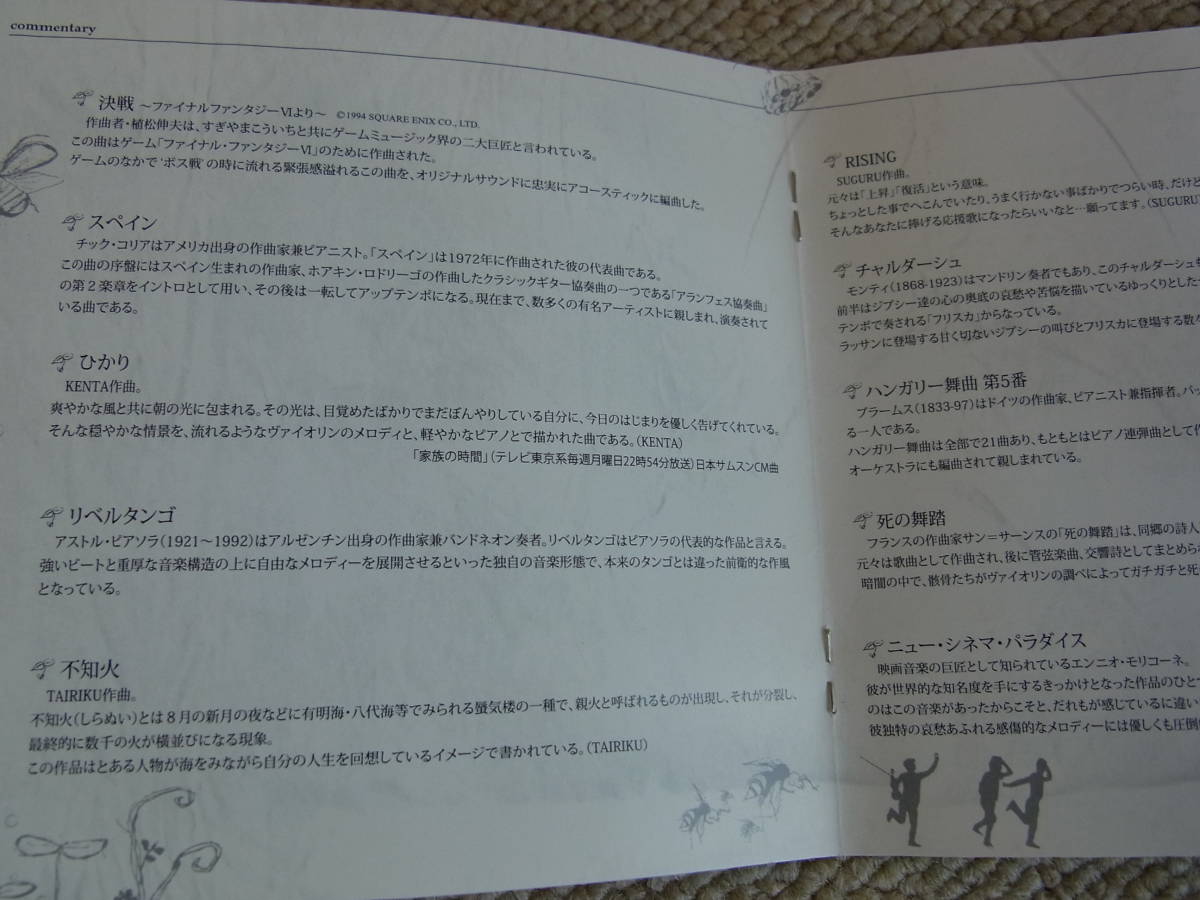 commentary
決戦 ～ファイナルファンタジーⅥより～ ©1994 SQUARE ENIX CO., LTD.
作曲者・植松伸夫は、すぎやまこういちと共にゲームミュージック界の二大巨匠と言われている。
この曲はゲーム「ファイナル・ファンタジーⅥ」のために作曲された。
ゲームのなかで‘ボス戦’の時に流れる緊張感溢れるこの曲を、オリジナルサウンドに忠実にアコースティックに編曲した。
スペイン
チック・コリアはアメリカ出身の作曲家兼ピアニスト。「スペイン」は1972年に作曲された彼の代表曲である。
この曲の序盤にはスペイン生まれの作曲家、ホアキン・ロドリーゴの作曲したクラシックギター協奏曲の一つである「アランフェス協奏曲」
の第２楽章をイントロとして用い、その後は一転してアップテンポになる。現在まで、数多くの有名アーティストに親しまれ、演奏されて
いる曲である。
ひかり
KENTA作曲。
爽やかな風と共に朝の光に包まれる。その光は、目覚めたばかりでまだぼんやりしている自分に、今日のはじまりを優しく告げてくれている。
そんな穏やかな情景を、流れるようなヴァイオリンのメロディと、軽やかなピアノとで描かれた曲である。（KENTA）
「家族の時間」（テレビ東京系毎週月曜日22時54分放送）日本サムスンCM曲
リベルタンゴ
アストル・ピアソラ（1921～1992）はアルゼンチン出身の作曲家兼バンドネオン奏者。リベルタンゴはピアソラの代表的な作品と言える。
強いビートと重厚な音楽構造の上に自由なメロディーを展開させるといった独自の音楽形態で、本来のタンゴとは違った前衛的な作風
となっている。
不知火
TAIRIKU作曲。
不知火（しらぬい）とは８月の新月の夜などに有明海・八代海等でみられる蜃気楼の一種で、親火と呼ばれるものが出現し、それが分裂し、
最終的に数千の火が横並びになる現象。
この作品はとある人物が海をみながら自分の人生を回想しているイメージで書かれている。（TAIRIKU）
RISING
SUGURU作曲。
元々は「上昇」「復活」という意味。
ちょっとした事でへこんでいたり、うまく行かない事ばかりでつらい時、だけど
そんなあなたに捧げる応援歌になったらいいなと…願ってます。（SUGURU）
チャルダーシュ
モンティ（1868-1923）はマンドリン奏者でもあり、このチャルダーシュも
前半はジプシー達の心の奥底の哀愁や苦悩を描いているゆっくりとした
テンポで奏される「フリスカ」からなっている。
ラッサンに登場する甘く切ないジプシーの叫びとフリスカに登場する数々
ハンガリー舞曲 第5番
ブラームス（1833-97）はドイツの作曲家、ピアニスト兼指揮者。バッ
る一人である。
ハンガリー舞曲は全部で21曲あり、もともとはピアノ連弾曲として作
オーケストラにも編曲されて親しまれている。
死の舞踏
フランスの作曲家サン＝サーンスの「死の舞踏」は、同郷の詩人
元々は歌曲として作曲され、後に管弦楽曲、交響詩としてまとめられ
暗闇の中で、骸骨たちがヴァイオリンの調べによってガチガチと死
ニュー・シネマ・パラダイス
映画音楽の巨匠として知られているエンニオ・モリコーネ。
彼が世界的な知名度を手にするきっかけとなった作品のひと
のはこの音楽があったからこそと、だれもが感じているに違い
彼独特の哀愁あふれる感傷的なメロディーには優しくも圧倒